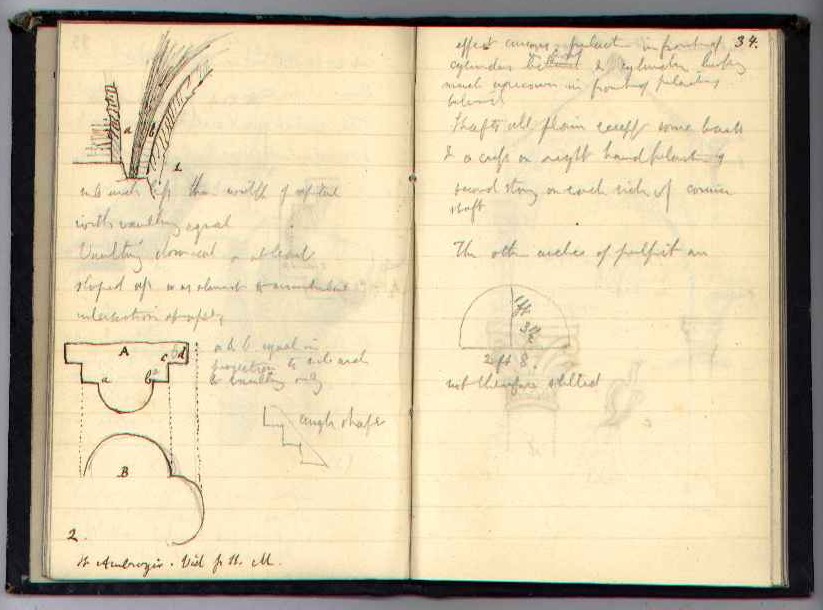 a
b
1.
than width of capital
with vaulting equal
Vaulting domical, at least
sloped up so as almost to
intersection of apse
A
a
b
c
d
a & b equal in
projection to side arch
& vaulting only
angle shape
B
2.
St Ambrogio. Vid p 11. M.
34.
effect curious, pilaster in front of
cylinder behind & cylinder having
much in front of pilaster
behind
Shafts all plain except some back
& a cross on right hand pilaster of
second story on each side of corner
shaft
The other arches of pulpit are
1ft
3 1/2
2 ft 8.
not therefore stilted